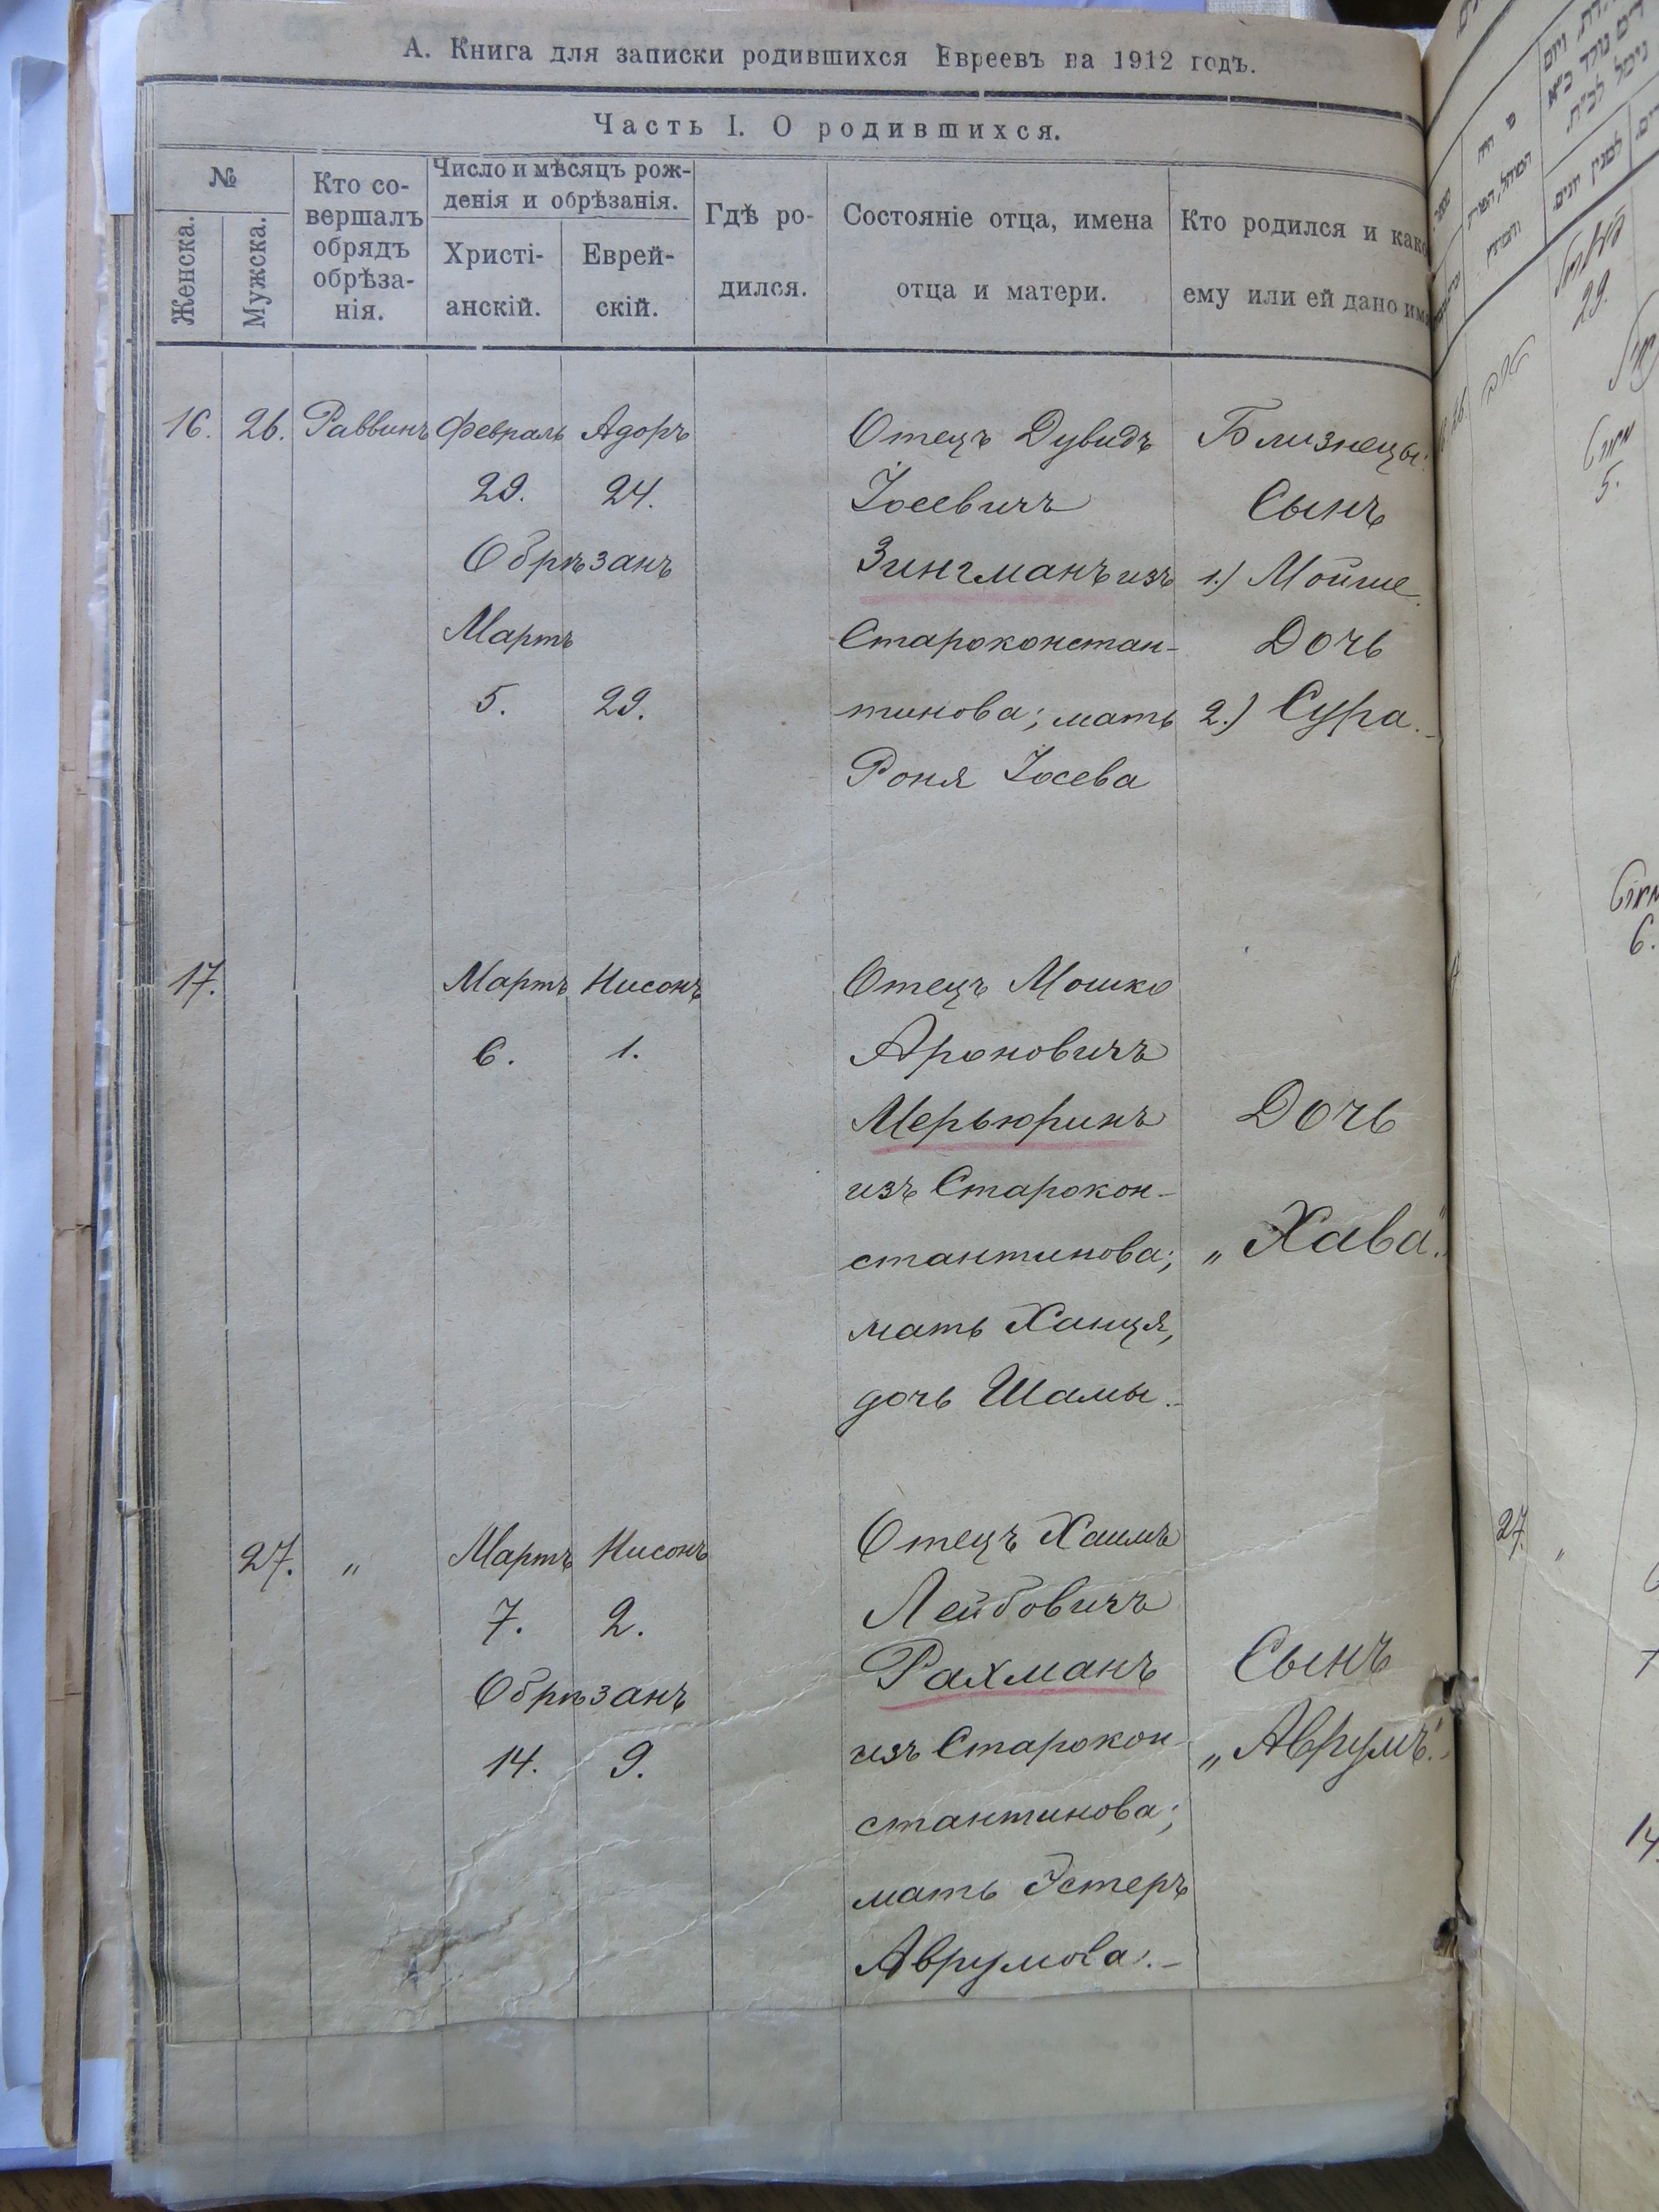 А. Книга для записки родившихся Евреевъ на 1912 годъ.
Часть I. О родившихся.
№
Женска.
Мужска.
Кто со-
вершалъ
обрядъ
обрѣза-
нія.
Число и мѣсяцъ рож-
денія и обрѣзанія.
Христі-
анскій.
Еврей-
скій.
Гдѣ ро-
дился.
Состояніе отца, имена
отца и матери.
Кто родился и како
ему или ей дано имя
16. 26. Раввинъ Февраль Адоръ Отецъ Дувидъ Близнецы:
29. 24. Іосевичъ Сынъ
Обрѣзанъ Зингманъ изъ 1.) Мойше.
Мартъ Староконстан- Дочь
5. 29. тинова; мать 2.) Сура.-
Роня Іосева
17. Мартъ Нисонъ Отецъ Мошко
6. 1. Ароновичъ
Мерьюринъ Дочь
изъ Старокон-
стантинова; „Хава".
мать Ханця,
дочь Шамы.-
27. „ Мартъ Нисонъ Отецъ Хаимъ
7. 2. Лейбовичъ
Рахманъ Сынъ
Обрѣзанъ
14. 9. изъ Старокон- „Аврумъ".-
стантинова;
мать Эстеръ
Аврумова.-
29.
5.
6.
27. „
7
14.